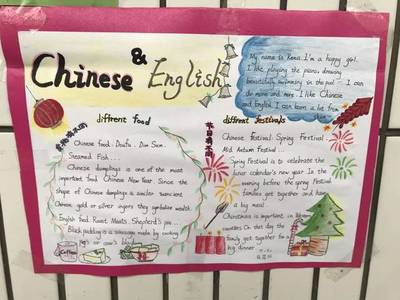 Chinese & English
My name is Kena. I'm a happy girl.
I like playing the piano, drawing
beautiful, swimming in the pool ... I can
do more and more. I like Chinese
and English. I can learn a lot from
them
diffrent food
Chinese food: Doufu, Dim Sum,
Steamed Fish...
Chinese dumplings is one of the most
important food Chinese New Year. Since the
shape of Chinese dumplings is similar ancient
Chinese gold or silver ingots they symbolize wealth.
English food: Roast Meats, Shepherd's pie......
Black pudding is a sausage made by cooking
pig's or cow's blood
Coffee
diffrent festivals
Chinese Festival: Spring Festival
Mid Autumn Festival...
Spring Festival is to celebrate the
lunar calendar's new year. In the
evening before the spring Festival
families get together and have
a big meal.
Christmas is important in
countries. On that day the
family get together for a
big dinner.